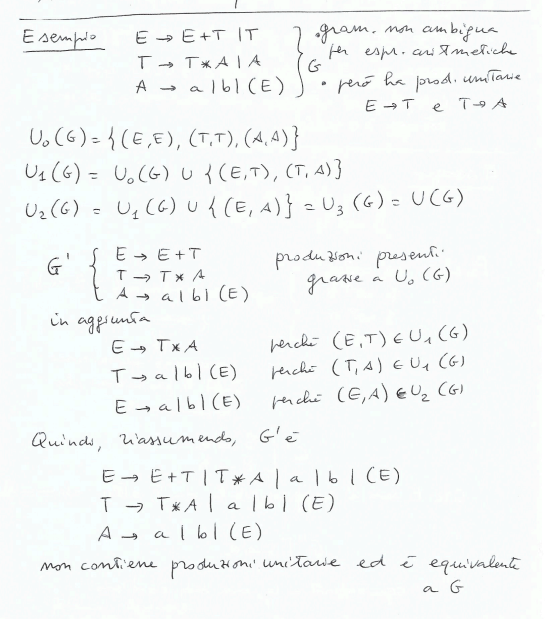 Esempio E → E+T | T } G • gram. non ambigua
T → T*A | A per espr. aritmetiche
A → a | b | (E) • però ha prod. unitarie
E → T e T → A
U₀(G) = { (E,E), (T,T), (A,A) }
U₁(G) = U₀(G) ∪ { (E,T), (T,A) }
U₂(G) = U₁(G) ∪ { (E,A) } = U₃(G) = U(G)
G' { E → E+T produzioni presenti
T → T*A grazie a U₀(G)
A → a | b | (E)
in aggiunta
E → T*A perché (E,T) ∈ U₁(G)
T → a | b | (E) perché (T,A) ∈ U₁(G)
E → a | b | (E) perché (E,A) ∈ U₂(G)
Quindi, riassumendo, G' è
E → E+T | T*A | a | b | (E)
T → T*A | a | b | (E)
A → a | b | (E)
non contiene produzioni unitarie ed è equivalente
a G